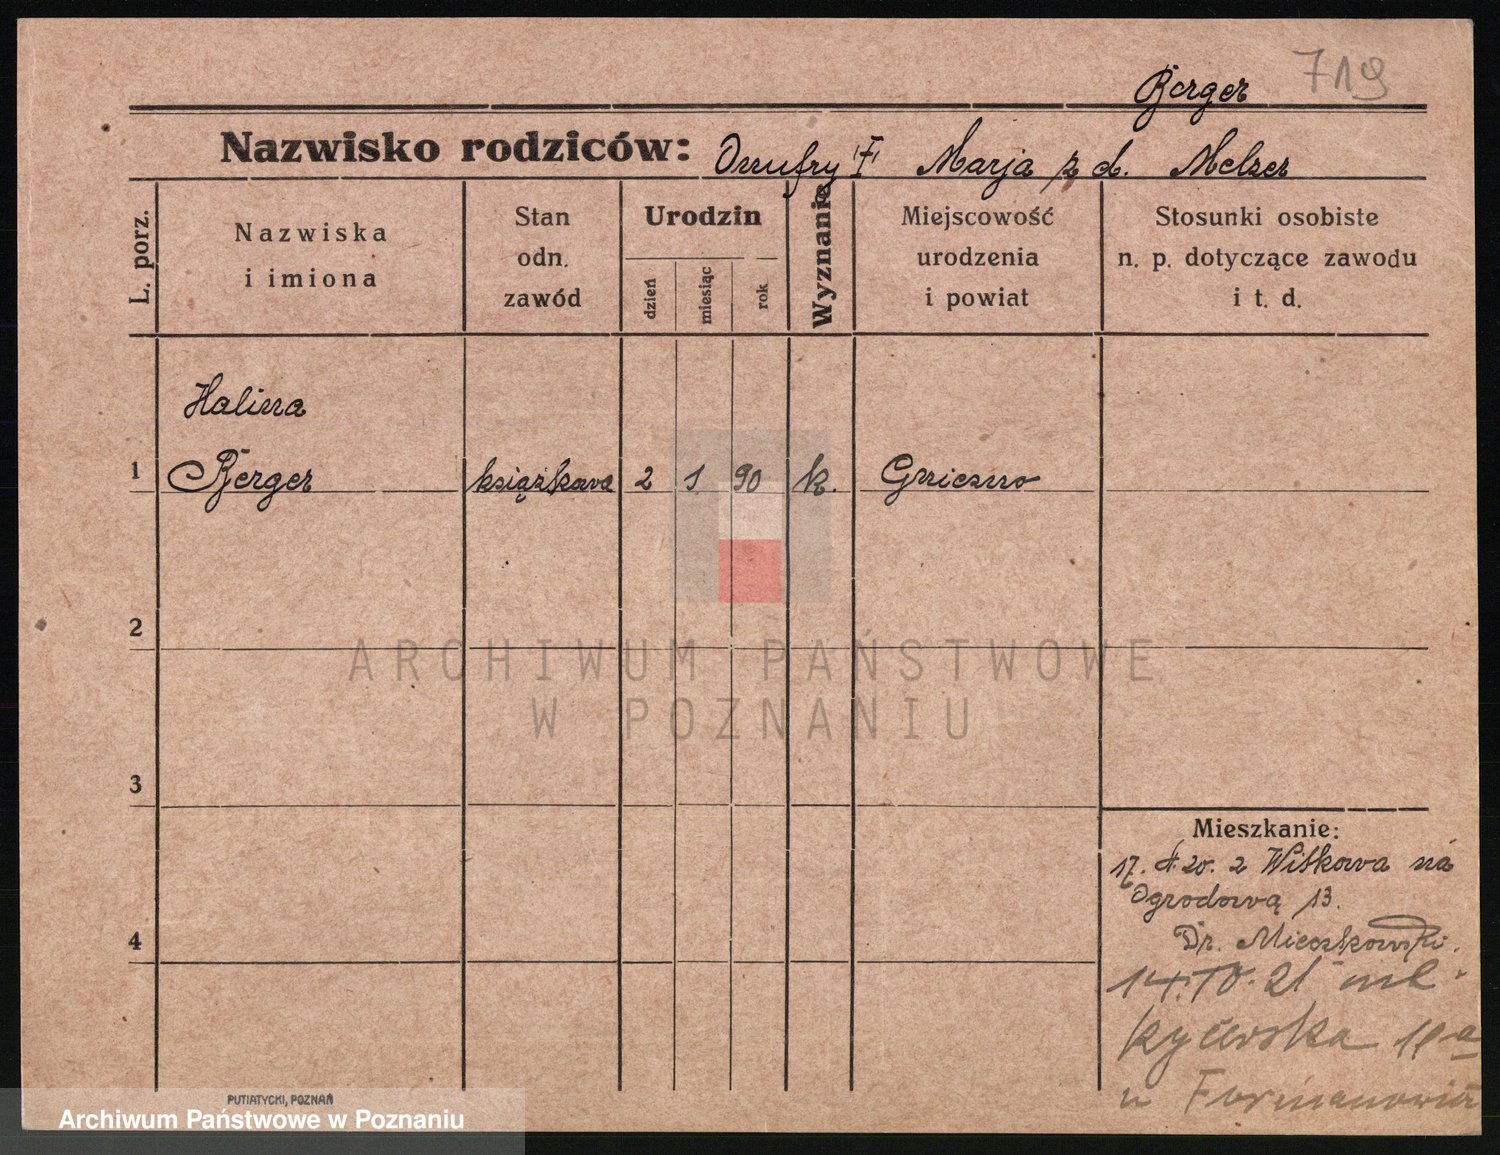 719
Berger
Nazwisko rodziców: Onufry Marja z d. Melzer
L. porz.
Nazwiska
i imiona
Stan
odn.
zawód
Urodzin
dzień
miesiąc
rok
Wyznanie
Miejscowość
urodzenia
i powiat
Stosunki osobiste
n. p. dotyczące zawodu
i t. d.
Halina
1 Berger książkowa 2 1 90 k. Gniezno
2
ARCHIWUM PAŃSTWOWE
W POZNANIU
3
Mieszkanie:
17. 4. 20. z Witkowa na
Ogrodową 13.
4
Dr. Mieczkowski.
14.IV.21 ul.
Rycerska 11a
u Formanowicz
PUTIATYCKI, POZNAŃ
Archiwum Państwowe w Poznaniu